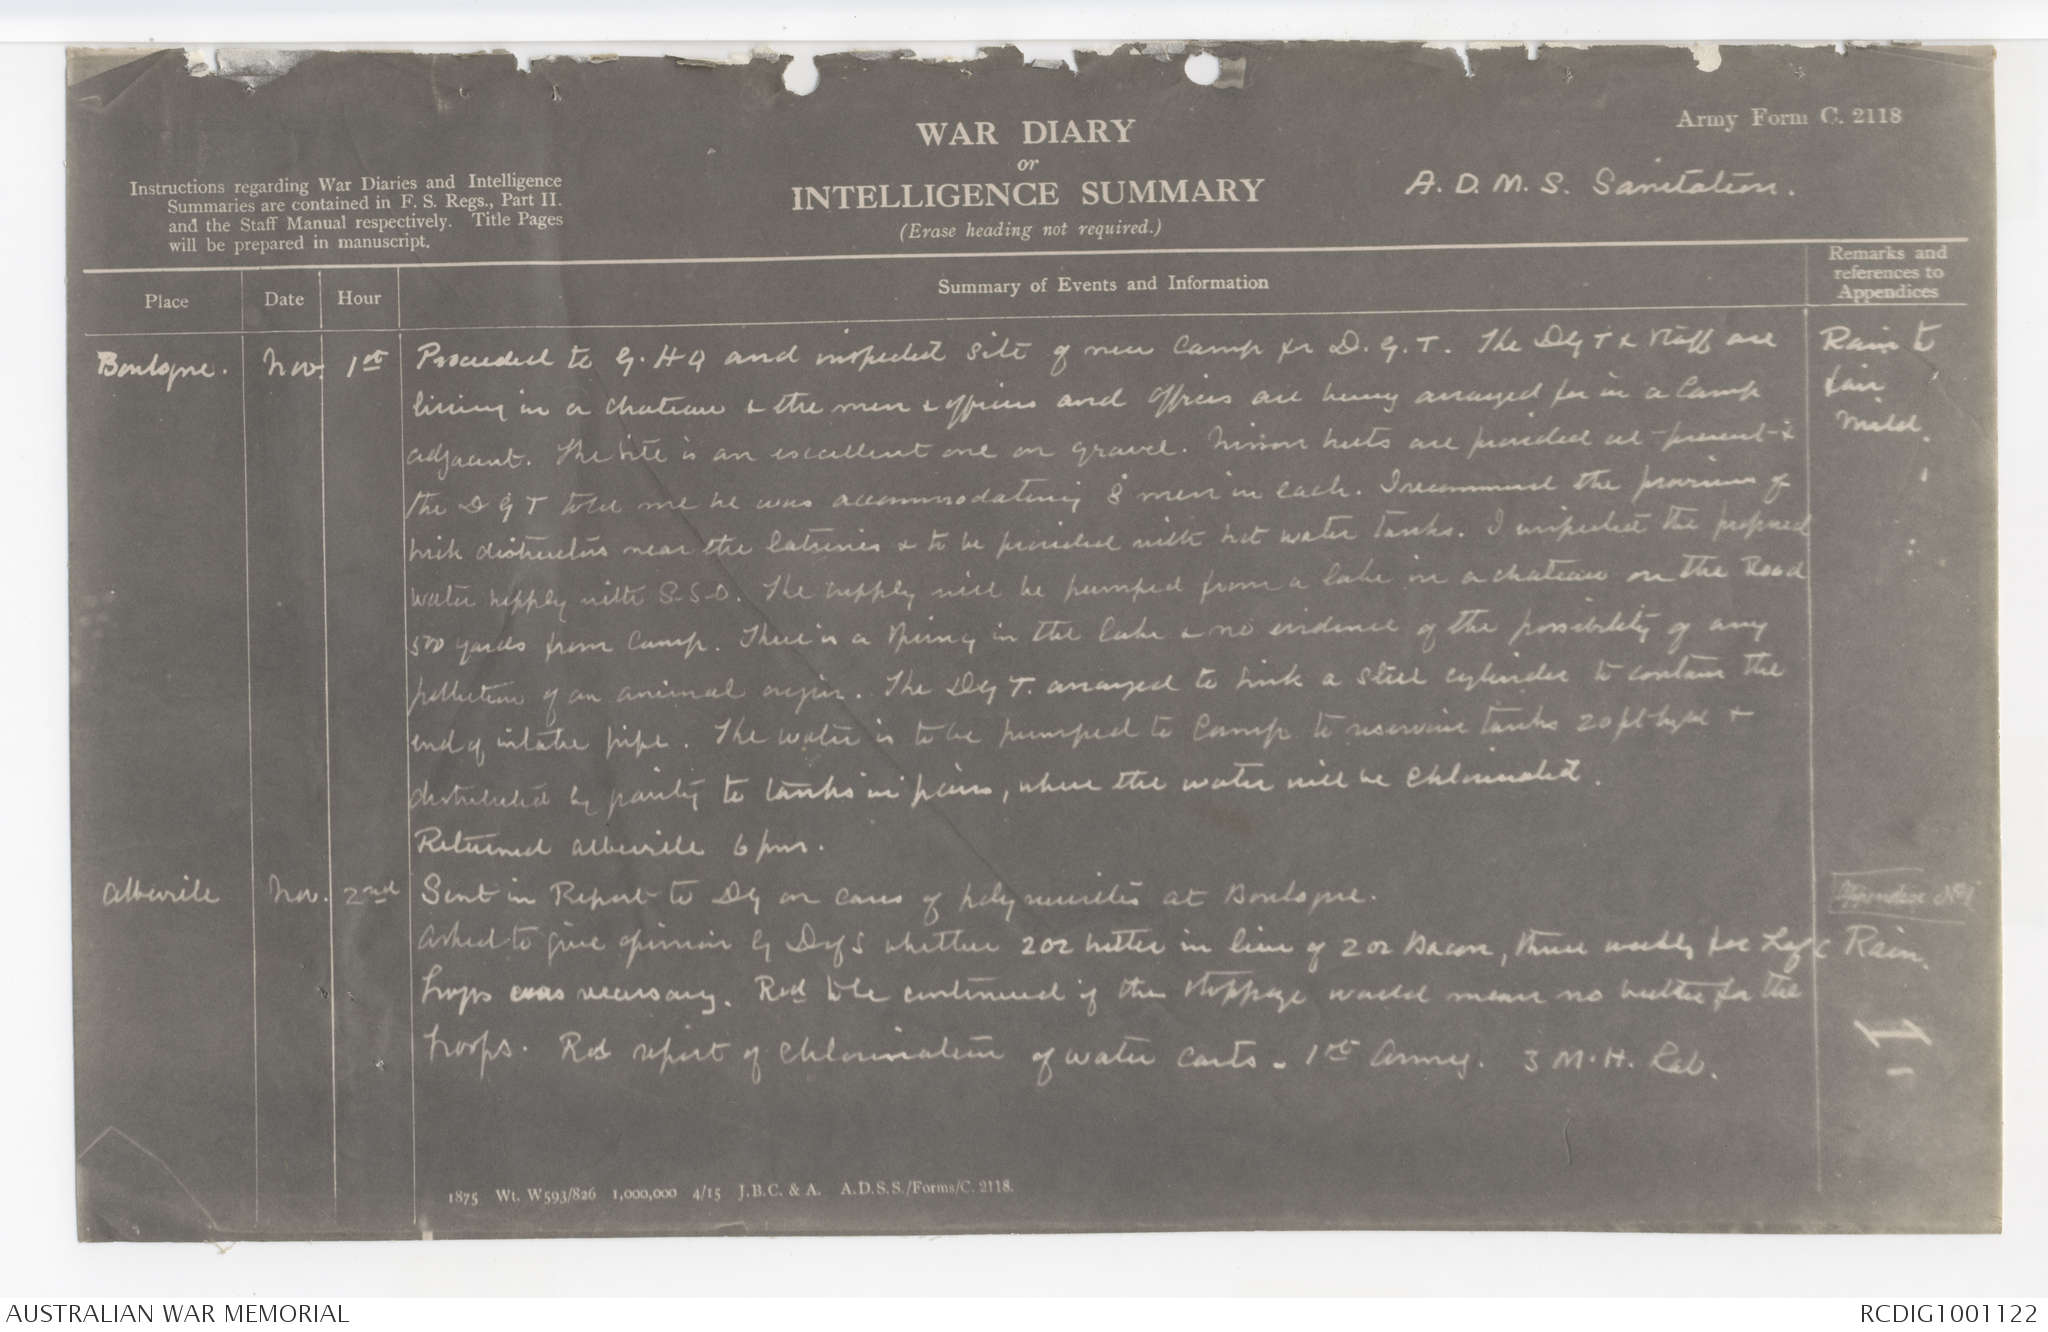 Army Form C. 2118
WAR DIARY
or
INTELLIGENCE SUMMARY
(Erase heading not required.)
A. D. M. S. Sanitation.
Instructions regarding War Diaries and Intelligence
Summaries are contained in F. S. Regs., Part II.
and the Staff Manual respectively. Title Pages
will be prepared in manuscript.
Place Date Hour Summary of Events and Information Remarks and references to Appendices
Boulogne. Nov. 1st Proceeded to G.H.Q and inspected site of new Camp for D.G.T. The DGT & Staff are Rain to
living in a chateau & the men & officers and offices are being arranged for in a Camp fair
adjacent. The site is an excellent one on gravel. Nissen huts are provided at present & Mild.
the DGT told me he was accommodating 8 men in each. I recommend the provision of
brick distructors near the latrines & to be provided with hot water tanks. I inspected the proposed
water supply with S.S.O. The supply will be pumped from a lake in a chateau on the Road
500 yards from Camp. There is a spring in the lake & no evidence of the possibility of any
pollution of an animal origin. The DGT. arranged to sink a steel cylinder to contain the
end of intake pipe. The water is to be pumped to Camp to reservoir tanks 20 ft high &
distributed by gravity to tanks in pairs, where the water will be chlorinated.
Returned abbeville 6 pm.
Abbeville Nov. 2nd Sent in Report to DG on cases of polyneuritis at Boulogne. Appendix No 1
Asked to give opinion by DGS whether 2 oz butter in lieu of 2 oz Bacon, three weekly for L of C Rain.
troops was necessary. Rcd to be continued if the stoppage would mean no butter for the
troops. Rcd report of chlorination of water carts - 1st Army. 3 M.H. Lab.
1875 Wt. W593/826 1,000,000 4/15 J.B.C. & A. A.D.S.S./Forms/C. 2118.
AUSTRALIAN WAR MEMORIAL
RCDIG1001122